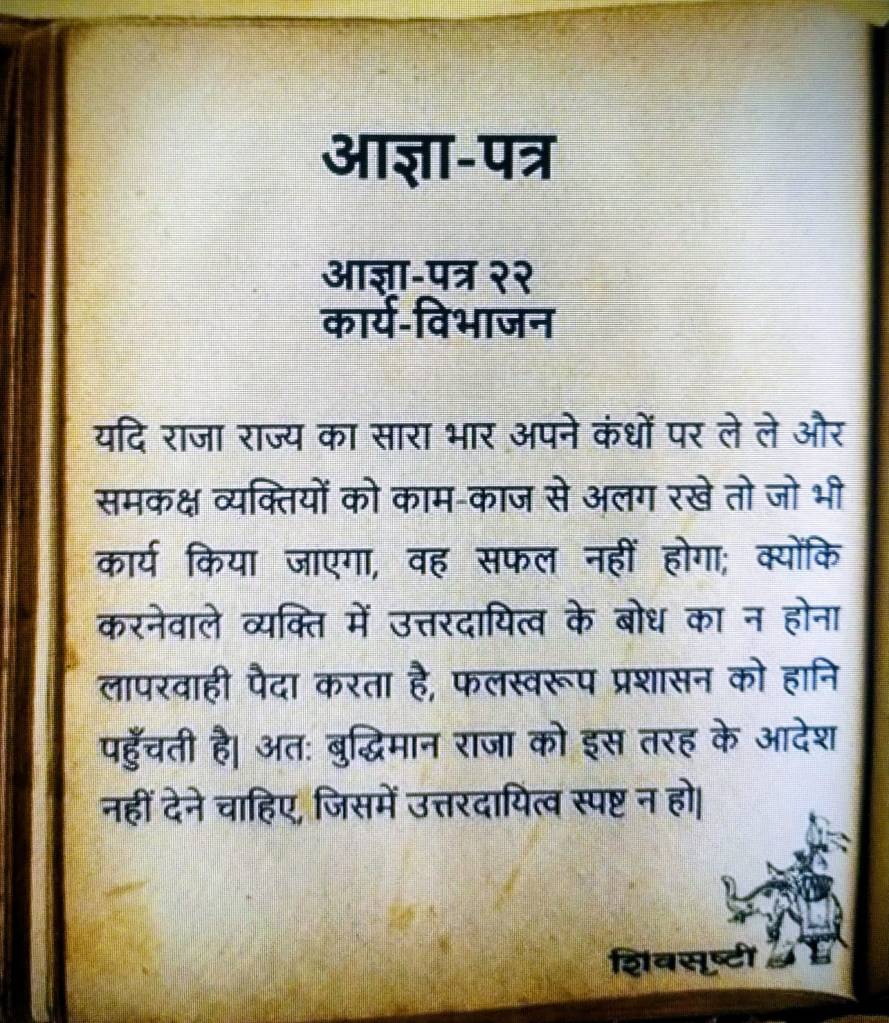 आज्ञा-पत्र
आज्ञा-पत्र २२
कार्य-विभाजन
यदि राजा राज्य का सारा भार अपने कंधों पर ले ले और
समकक्ष व्यक्तियों को काम-काज से अलग रखे तो जो भी
कार्य किया जाएगा, वह सफल नहीं होगा; क्योंकि
करनेवाले व्यक्ति में उत्तरदायित्व के बोध का न होना
लापरवाही पैदा करता है, फलस्वरूप प्रशासन को हानि
पहुँचती है| अतः बुद्धिमान राजा को इस तरह के आदेश
नहीं देने चाहिए, जिसमें उत्तरदायित्व स्पष्ट न हो|
शिवसृष्टी